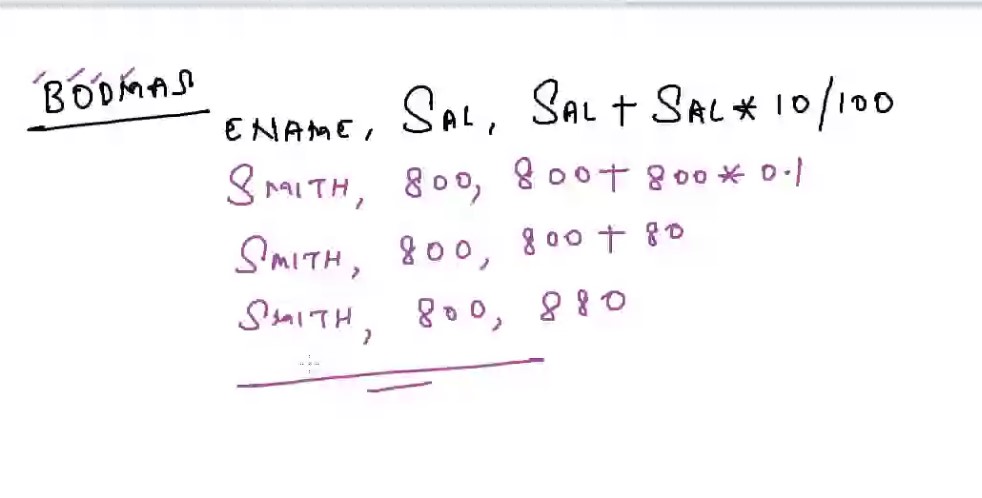 BODMAS
ENAME, SAL, SAL + SAL * 10/100
SMITH, 800, 800+ 800 * 0.1
SMITH, 800, 800 + 80
SMITH, 800, 880